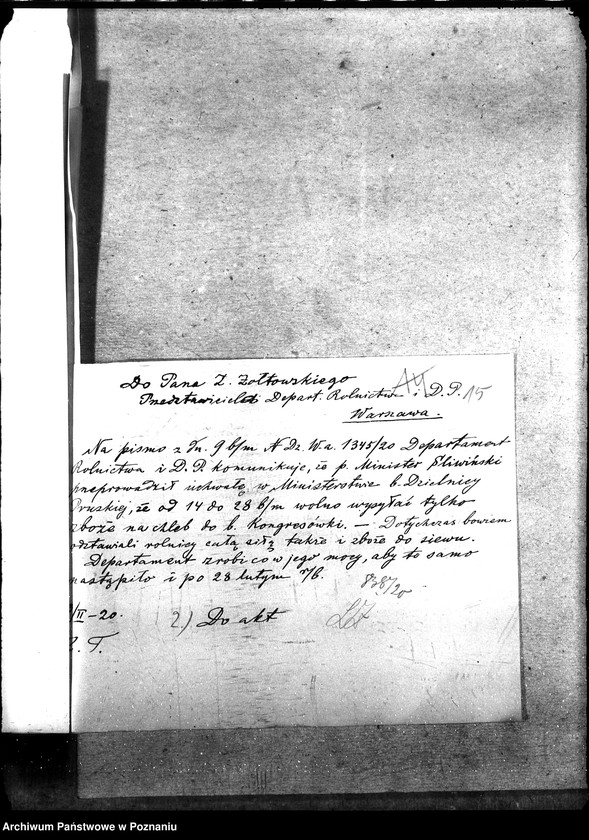 Do Pana Z. Żółtowskiego
Przedstawiciela Depart. Rolnictwa i D.P. 15
Warszawa.
Na pismo z dn. 9 b/m N Dz. W.a. 1345/20 Departament
Rolnictwa i D. P. komunikuje, że p. Minister Śliwiński
przeprowadził uchwałę w Ministerstwie b. Dzielnicy
Pruskiej, że od 14 do 28 b/m wolno wysyłać tylko
zboże na chleb do b. Kongresówki. — Dotychczas bowiem
odstawiali rolnicy całą siłą także i zboże do siewu.
Departament zrobi co w jego mocy, aby to samo
nastąpiło i po 28 lutym r/b.
838/20
/II – 20. 2.) Do akt
Archiwum Państwowe w Poznaniu